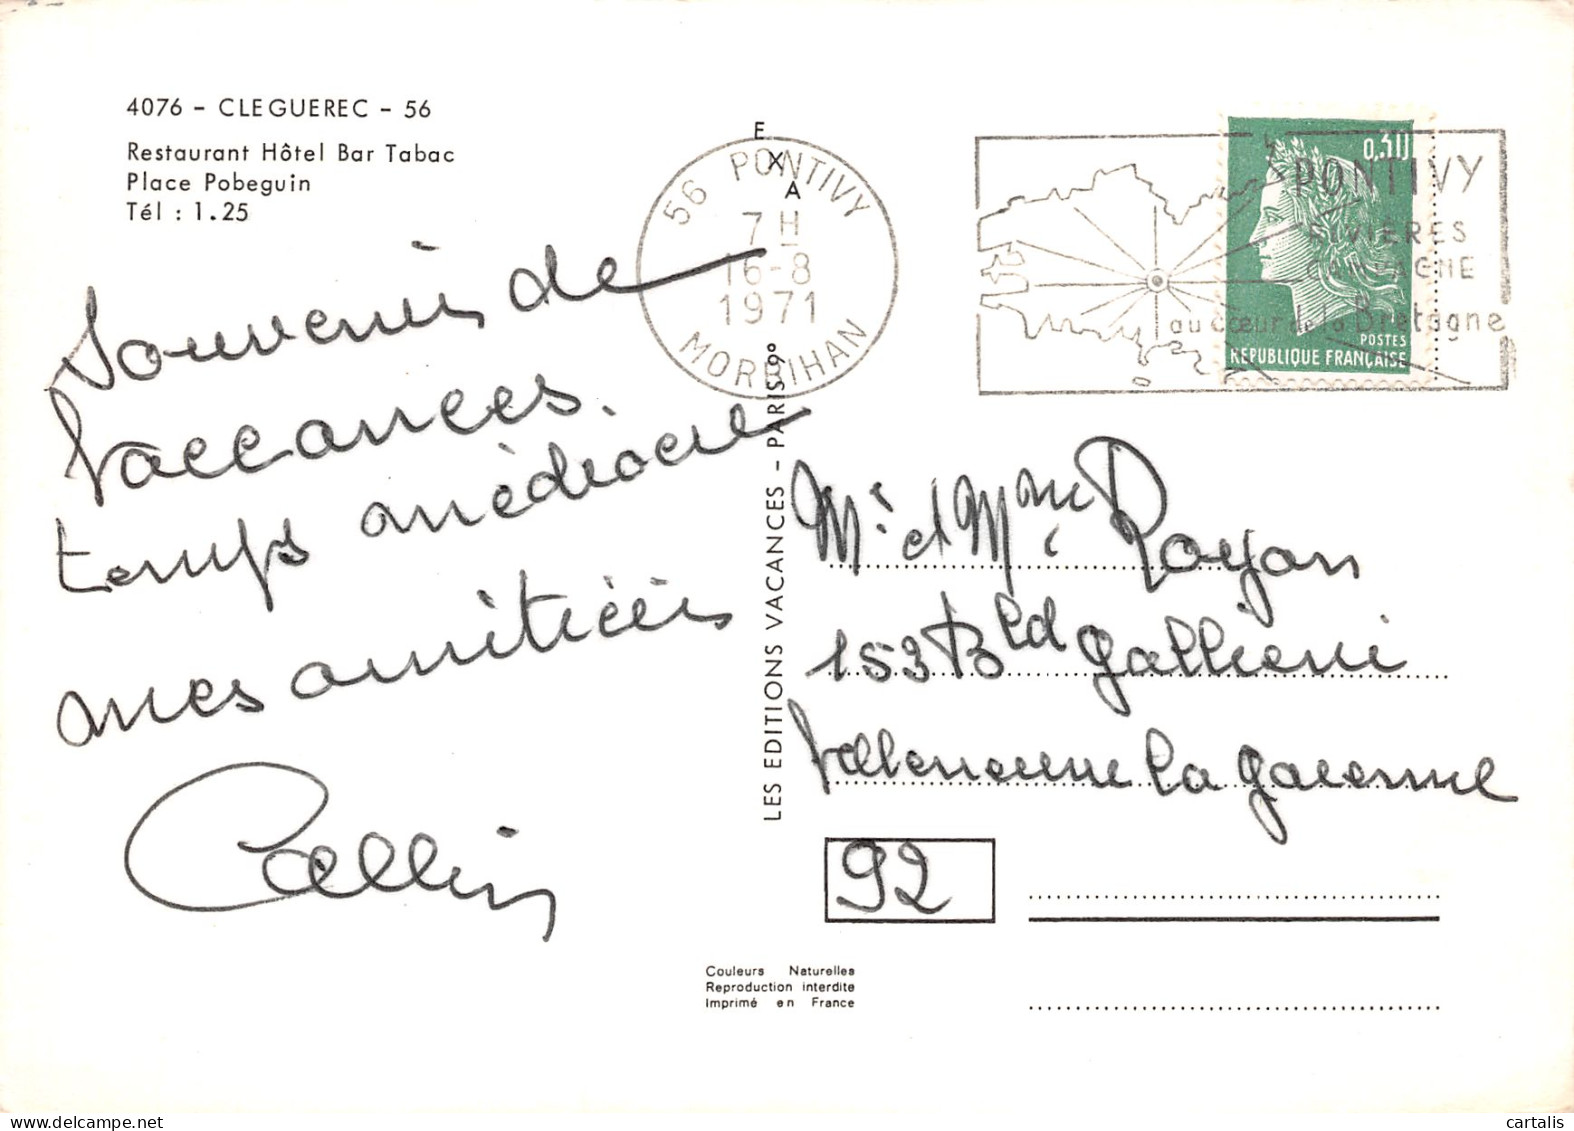 4076 - CLEGUEREC - 56
Restaurant Hôtel Bar Tabac
Place Pobeguin
Tél : 1.25
Souvenirs de
Vaccances.
temps médiocre
mes amitiées
EXA
LES EDITIONS VACANCES - PARIS 9°
56 PONTIVY
7 H
16-8
1971
MORBIHAN
PONTIVY
RIVIÈRES
CAMPAGNE
au cœur de la Bretagne
0,30
POSTES
REPUBLIQUE FRANÇAISE
Mr. et Mme Royan
153 Bld Gallieni
Villeneuve la Garenne
92
Couleurs Naturelles
Reproduction interdite
Imprimé en France
© cartalis